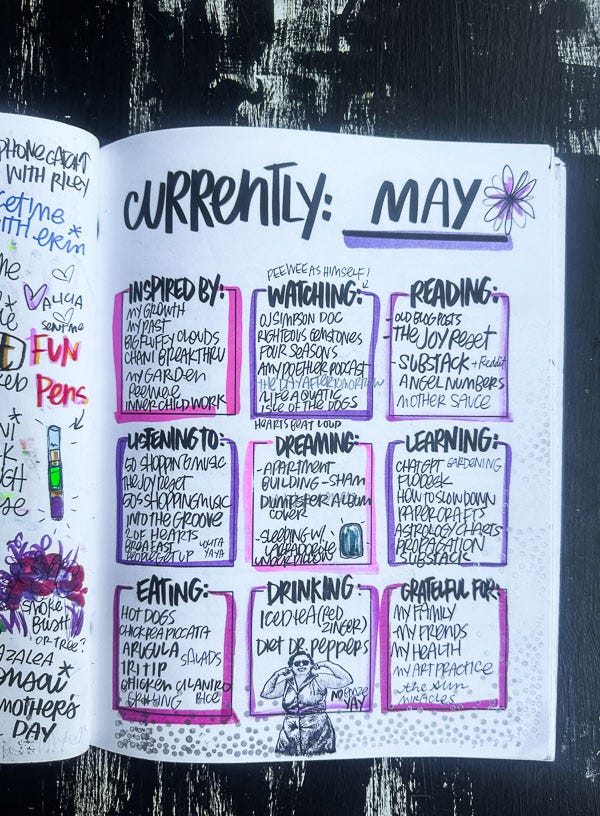 PHONE CATCH
WITH RILEY
with erin
ALICIA
sent me
FUN
Pens
smoke
BUSH
OR TREE?
AZALEA
MOTHER'S
DAY
CURRENTLY: MAY
INSPIRED BY:
MY GROWTH
MY PAST
BIG FLUFFY CLOUDS
CHANI BREAKTHRU
MY GARDEN
PEEWEE
INNER CHILD WORK
PEEWEE AS HIMSELF!
WATCHING:
OJ SIMPSON DOC
RIGHTEOUS GEMSTONES
FOUR SEASONS
AMY POEHLER PODCAST
THE DAY AFTER TOMORROW
LIFE AQUATIC
ISLE OF THE DOGS
HEARTS BEAT LOUD
READING:
- OLD BLOG POSTS
- THE JOY RESET
- SUBSTACK + Reddit
ANGEL NUMBERS
MOTHER SAUCE
LISTENING TO:
50 SHOPPING MUSIC
THE JOY RESET
50S SHOPPING MUSIC
INTO THE GROOVE
2 OF HEARTS
BREAKFAST
YAYA
DREAMING:
- APARTMENT
BUILDING - SHAM
DUMPSTER ALBUM
COVER
- SLEEPING W/
LABRADORITE
UNDER PILLOW
LEARNING:
CHATGPT GARDENING
HOW TO SLOW DOWN
PAPER CRAFTS
ASTROLOGY CHARTS
PROPAGATION
SUBSTACK
EATING:
HOT DOGS
CHICKPEA PICCATA
ARUGULA SALADS
TRI TIP
CHICKEN CILANTRO
RICE
DRINKING:
ICED TEA (RED
ZINGER)
DIET DR. PEPPERS
NO BOOZE
YAY
GRATEFUL FOR:
MY FAMILY
MY FRIENDS
MY HEALTH
MY ART PRACTICE
the sun
miracles